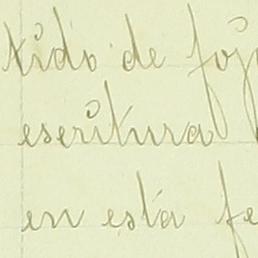 tido de foj
escritura
en esta fe